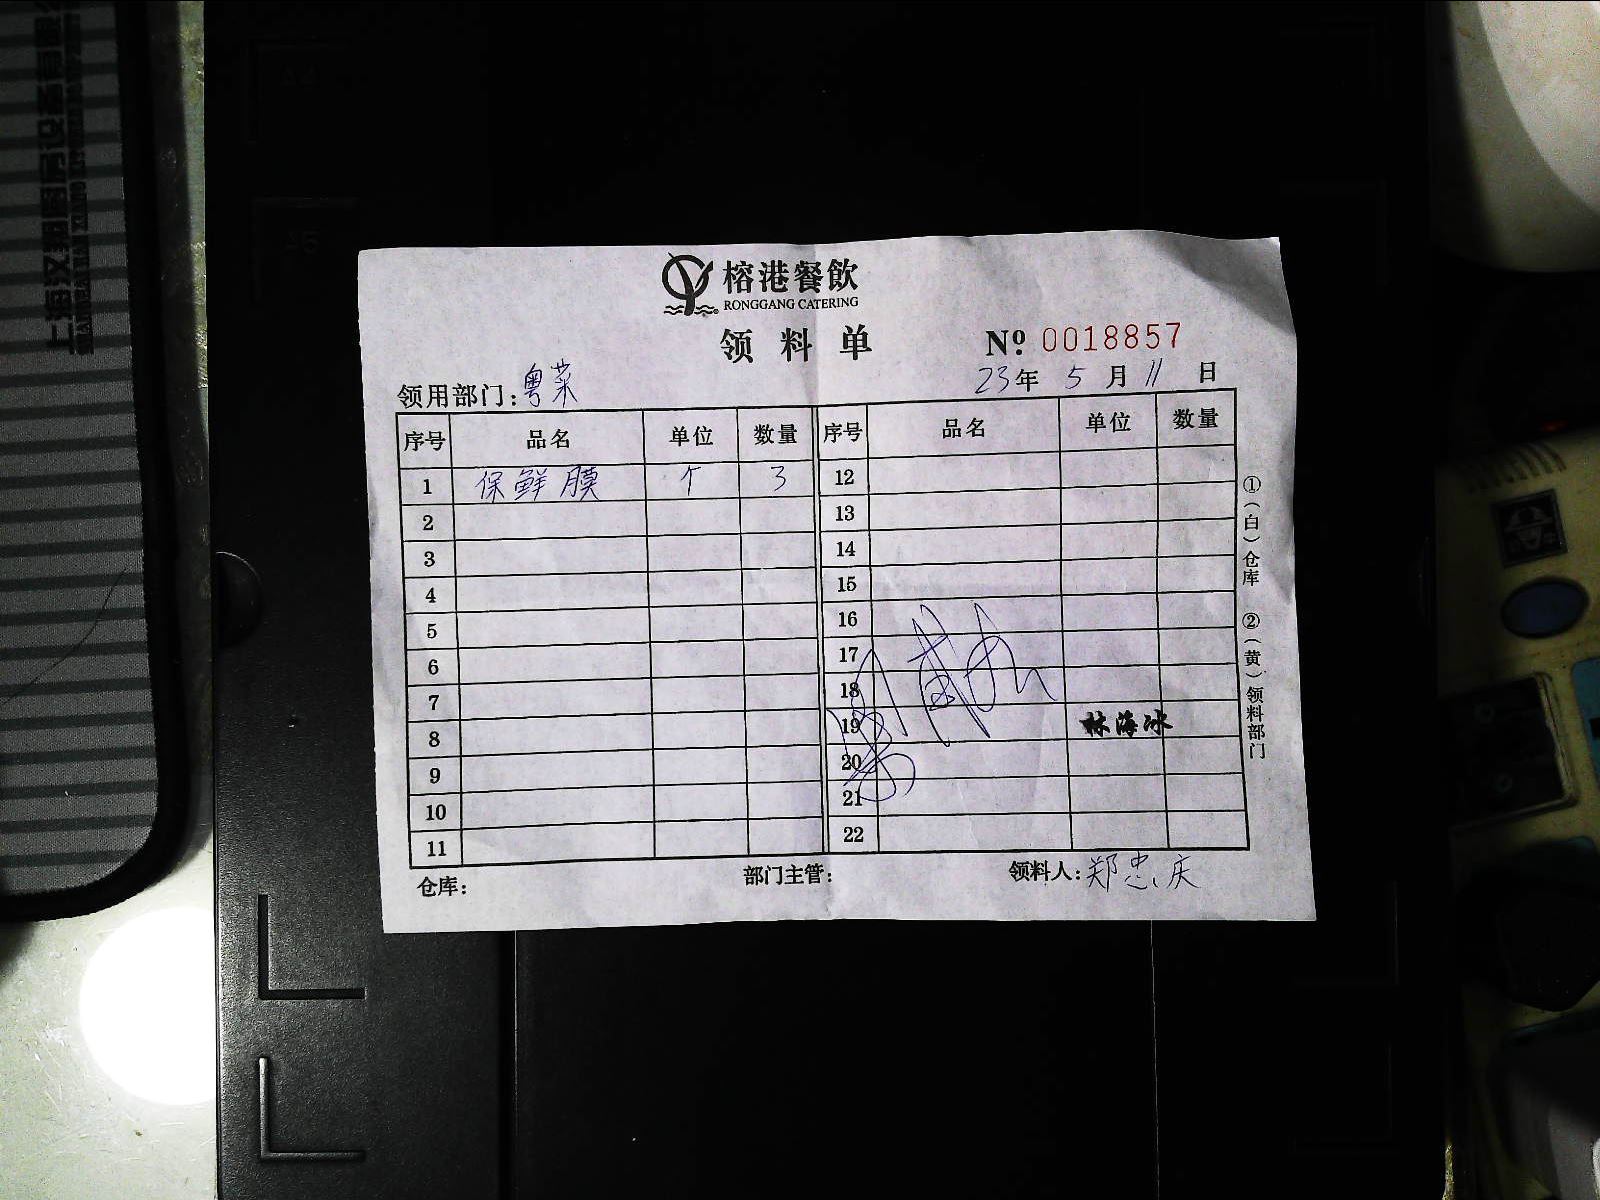 榕港餐飲
RONGGANG CATERING
领料单
№ 0018857
领用部门:粤菜
23年 5月 11日
序号 品名 单位 数量 序号 品名 单位 数量
1 保鲜膜 个 3 12
2 13
3 14
4 15
5 16
6 17
7 18
8 19 林海冰
9 20
10 21
11 22
仓库: 部门主管: 领料人:郑忠庆
①(白)仓库 ②(黄)领料部门